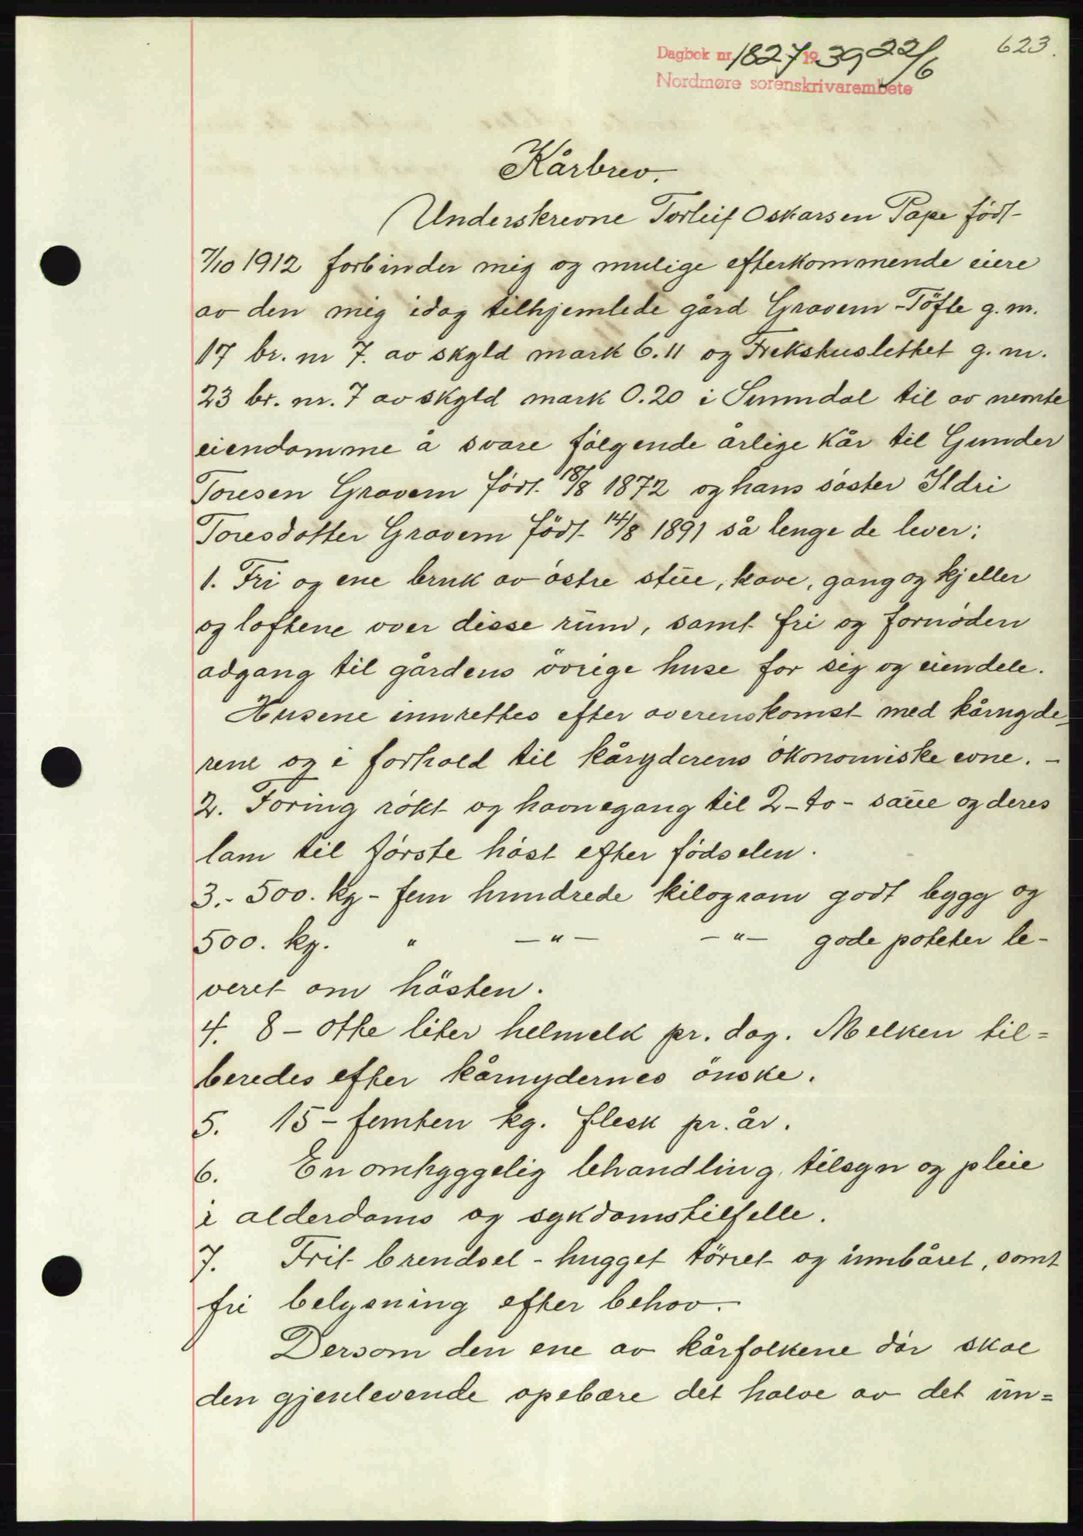 623.
Dagbok nr. 1827 1939 22/6
Nordmøre sorenskrivarembete
Kårbrev.
Underskrevne Torleif Oskarsen Pape født
7/10 1912 forbinder mig og mulige efterkommende eiere
av den mig idag tilhjemlede gård Gravem-Töfte g.nr.
17 br. nr 7. av skyld mark 6.11 og Frekshuslettet g.nr.
23 br. nr. 7 av skyld mark 0.20 i Sunndal til av nemte
eiendomme å svare fölgende årlige kår til Gunder
Toresen Gravem født 18/8 1872 og hans söster Ildri
Toresdotter Gravem födt 14/8 1891 så lenge de lever:
1. Fri og ene bruk av östre stue, kove, gang og kjeller
og loftene over disse rum, samt fri og fornöden
adgang til gårdens övrige huse for sig og eiendele.
Husene innrettes efter overenskomst med kårnyde-
rene og i forhold til kåryderens ökonomiske evne. -
2. Foring rökt og havnegang til 2-to- saue og deres
lam til förste höst efter födselen.
3.- 500. kg - fem hundrede kilogram godt bygg og
500. kg. " -"- -"- gode poteter le-
veret om hösten.
4. 8 - otte liter helmelk pr. dag. Melken til=
beredes efter kårnydernes önske.
5. 15 - femten kg. flesk pr. år.
6. En omhyggelig behandling, tilsyn og pleie
i alderdoms og sykdomstilfelle.
7. Frit brendsel - hugget törret og innbåret, samt
fri belysning efter behov.-
Dersom den ene av kårfolkene dör skal
den gjenlevende opebære det halve av det un=